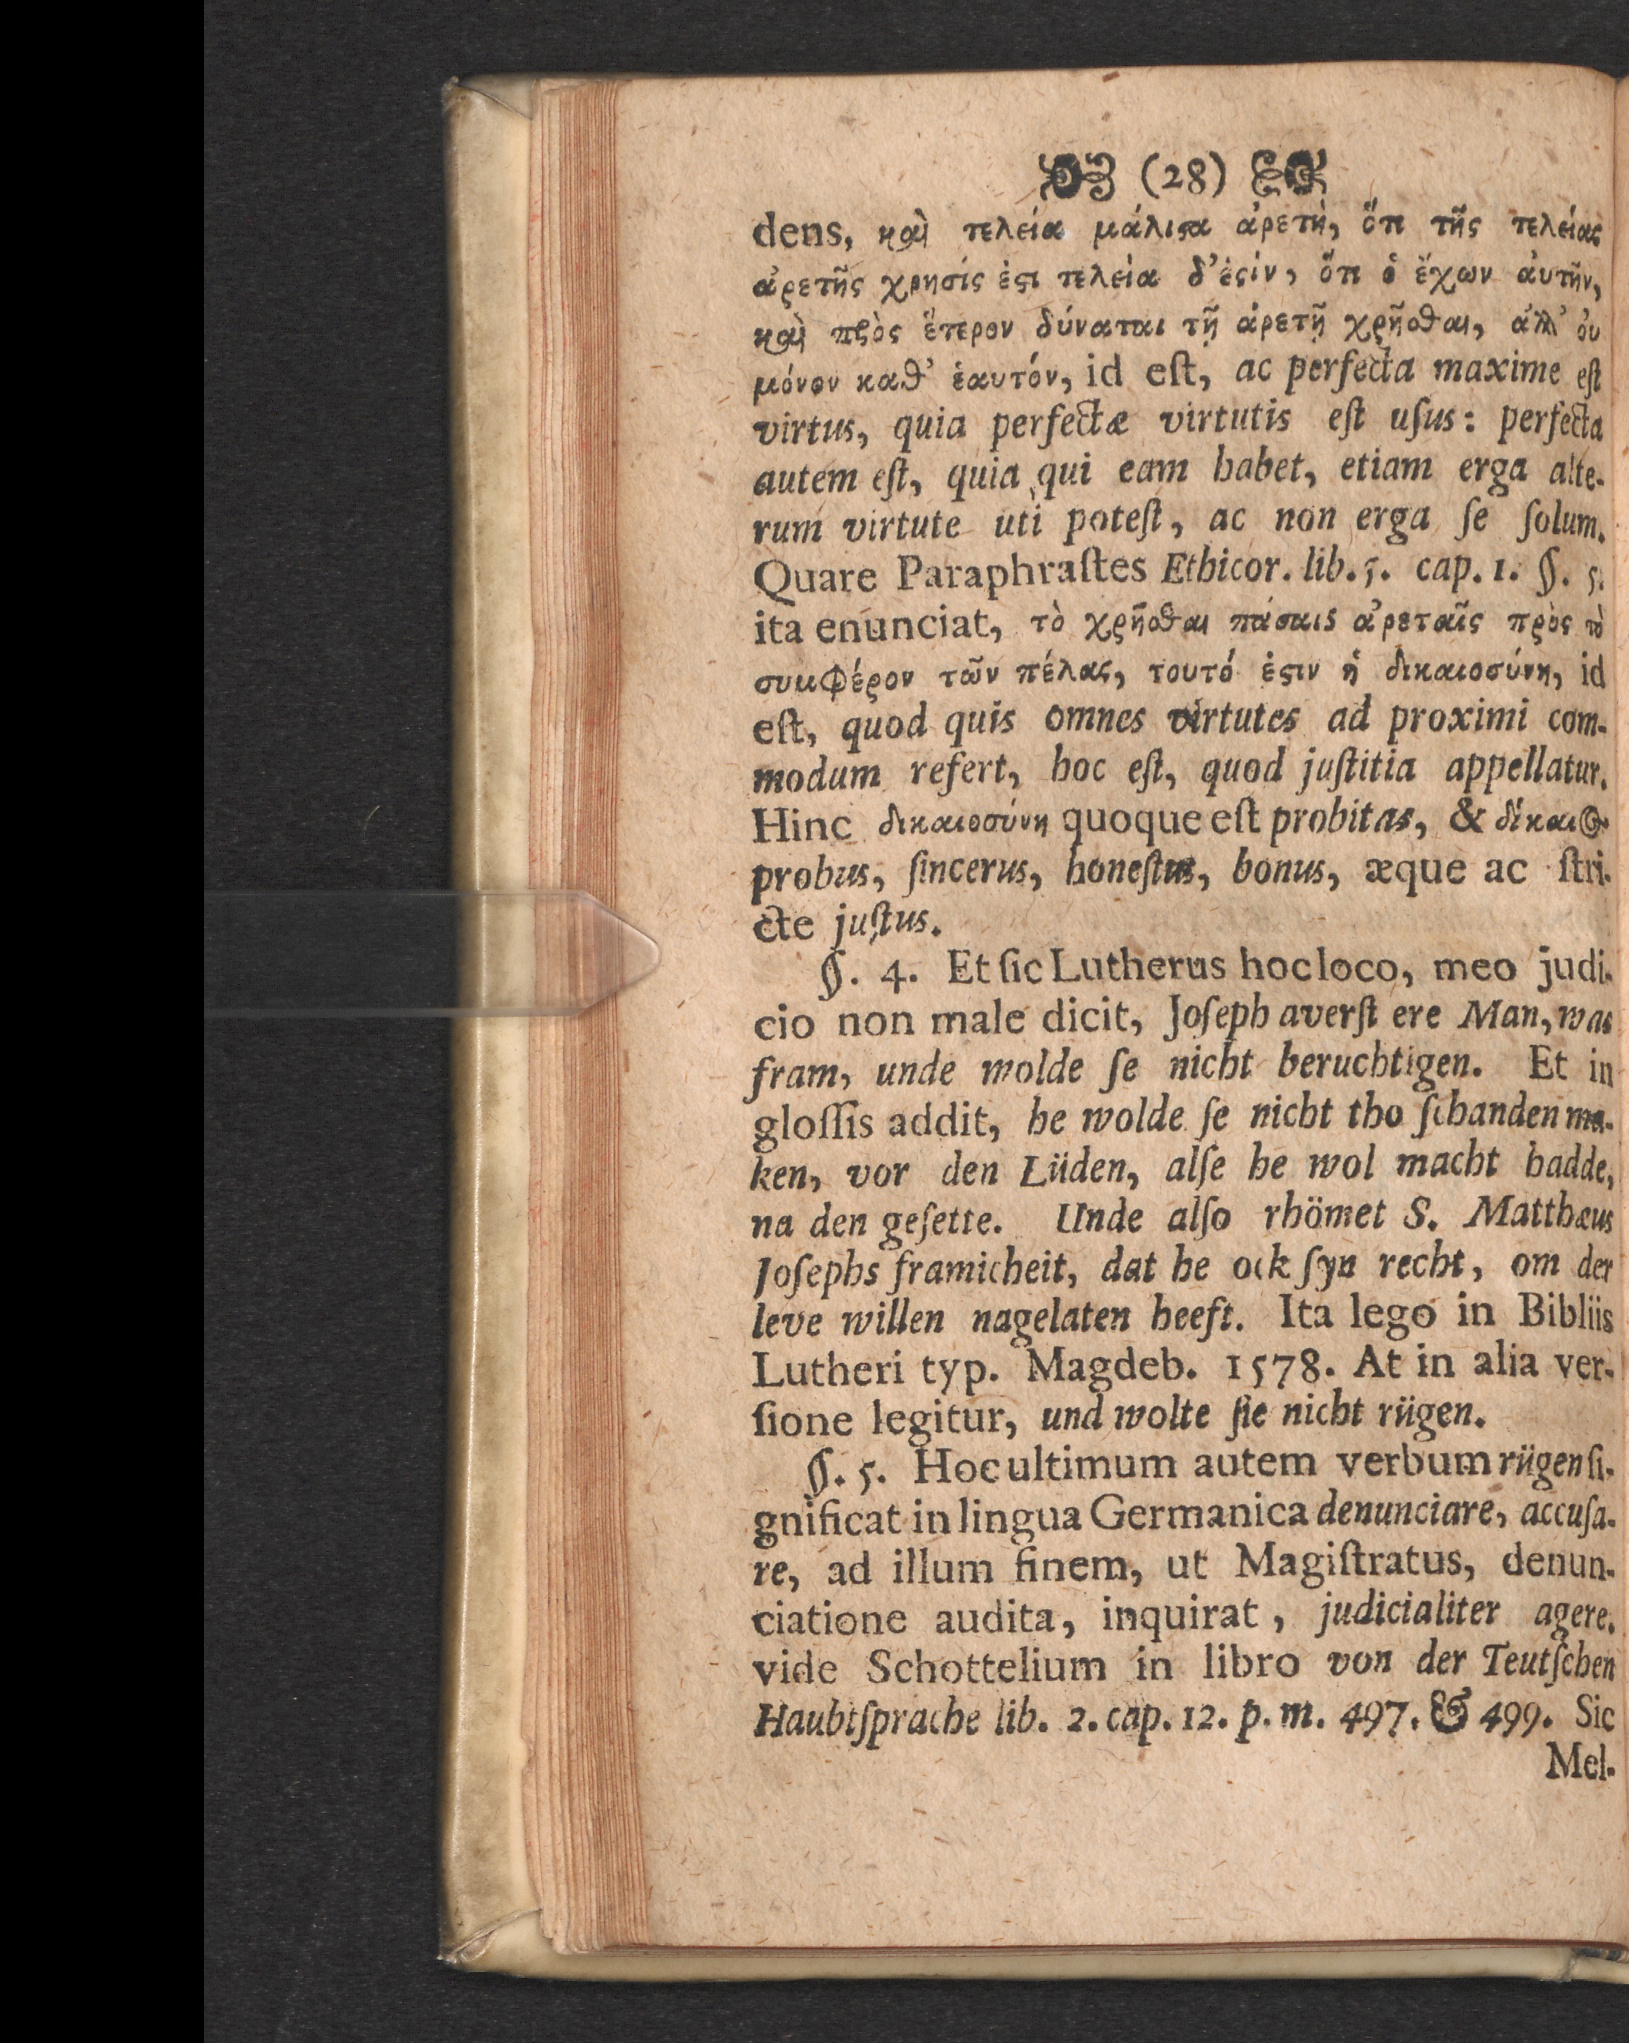 (28)
dens, καὶ τελεία μάλιϛα ἀρετὴ, ὅτι τῆς τελείας
ἀρετῆς χρησίς ἐϛι τελεία δ'ἐϛίν, ὅτι ὁ ἔχων ἀυτῆν,
καὶ πρὸς ἕτερον δύναται τῇ ἀρετῇ χρῆσθαι, ἀλλ' ὀυ
μόνον καθ' ἑαυτόν, id eſt, ac perfecta maxime eſt
virtus, quia perfectæ virtutis eſt uſus: perfecta
autem eſt, quia qui eam habet, etiam erga alte-
rum virtute uti poteſt, ac non erga ſe ſolum.
Quare Paraphraſtes Ethicor. lib. 5. cap. 1. §. 5.
ita enunciat, τὸ χρῆσθαι πάσαις ἀρεταῖς πρὸς τὸ
συμφέρον τῶν πέλας, τουτό ἐϛιν ἡ δικαιοσύνη, id
eſt, quod quis omnes virtutes ad proximi com-
modum refert, hoc eſt, quod juſtitia appellatur.
Hinc δικαιοσύνη quoque eſt probitas, & δίκαιος
probus, ſincerus, honeſtus, bonus, æque ac ſtri-
cte juſtus.
§. 4. Et ſic Lutherus hoc loco, meo judi-
cio non male dicit, Joſeph averſt ere Man, was
fram, unde wolde ſe nicht beruchtigen. Et in
gloſſis addit, he wolde ſe nicht tho ſchanden ma-
ken, vor den Lüden, alſe he wol macht hadde,
na den geſette. Unde alſo rhömet S. Matthæus
Joſephs framicheit, dat he ock ſyn recht, om der
leve willen nagelaten heeft. Ita lego in Bibliis
Lutheri typ. Magdeb. 1578. At in alia ver-
ſione legitur, und wolte ſie nicht rügen.
§. 5. Hoc ultimum autem verbum rügen ſi-
gnificat in lingua Germanica denunciare, accuſa-
re, ad illum finem, ut Magiſtratus, denun-
ciatione audita, inquirat, judicialiter agere.
vide Schottelium in libro von der Teutſchen
Haubtſprache lib. 2. cap. 12. p. m. 497. & 499. Sic
Mel-